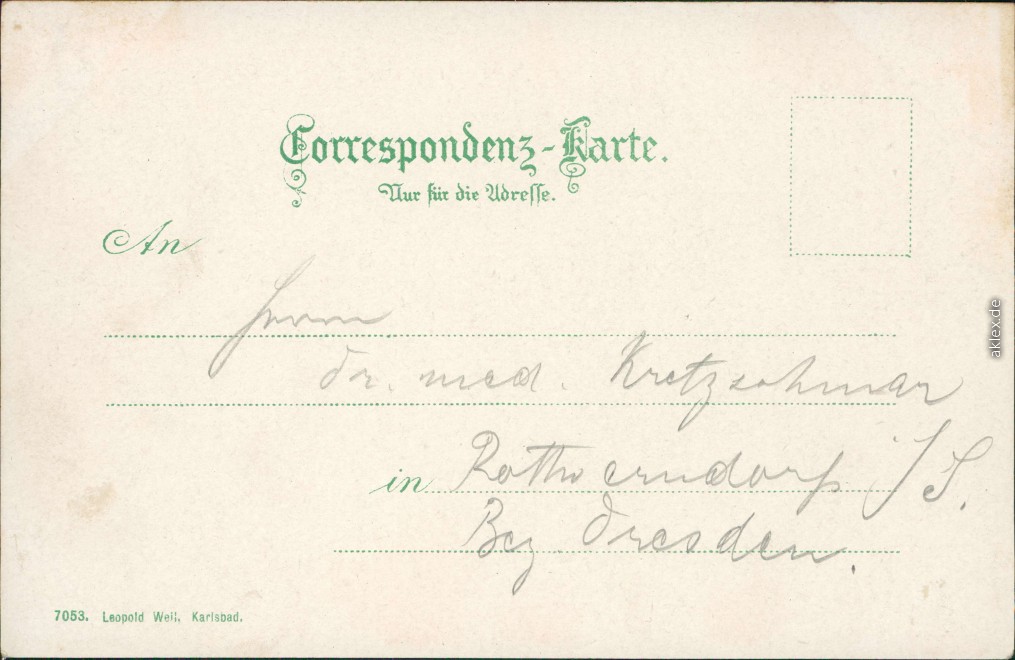 Correspondenz-Karte.
Nur für die Adresse.
An
Herrn
Dr. med. Kretzschmar
in Rottwerndorf / S.
Bez. Dresden.
7053. Leopold Weil, Karlsbad.
aklex.de